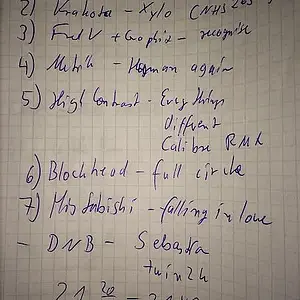 2) Krakota - Xylo CNHS
3) Fred V + Grafix - recognise
4) Metrik - Human again
5) High Contrast - Everythings
different
Calibre RMX
6) Blockhead - full circle
7) Mis - falling in love
- DNB - Sebasta